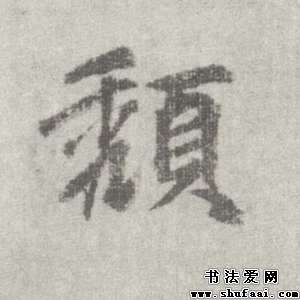 頽
书法爱网
www.shufaai.com